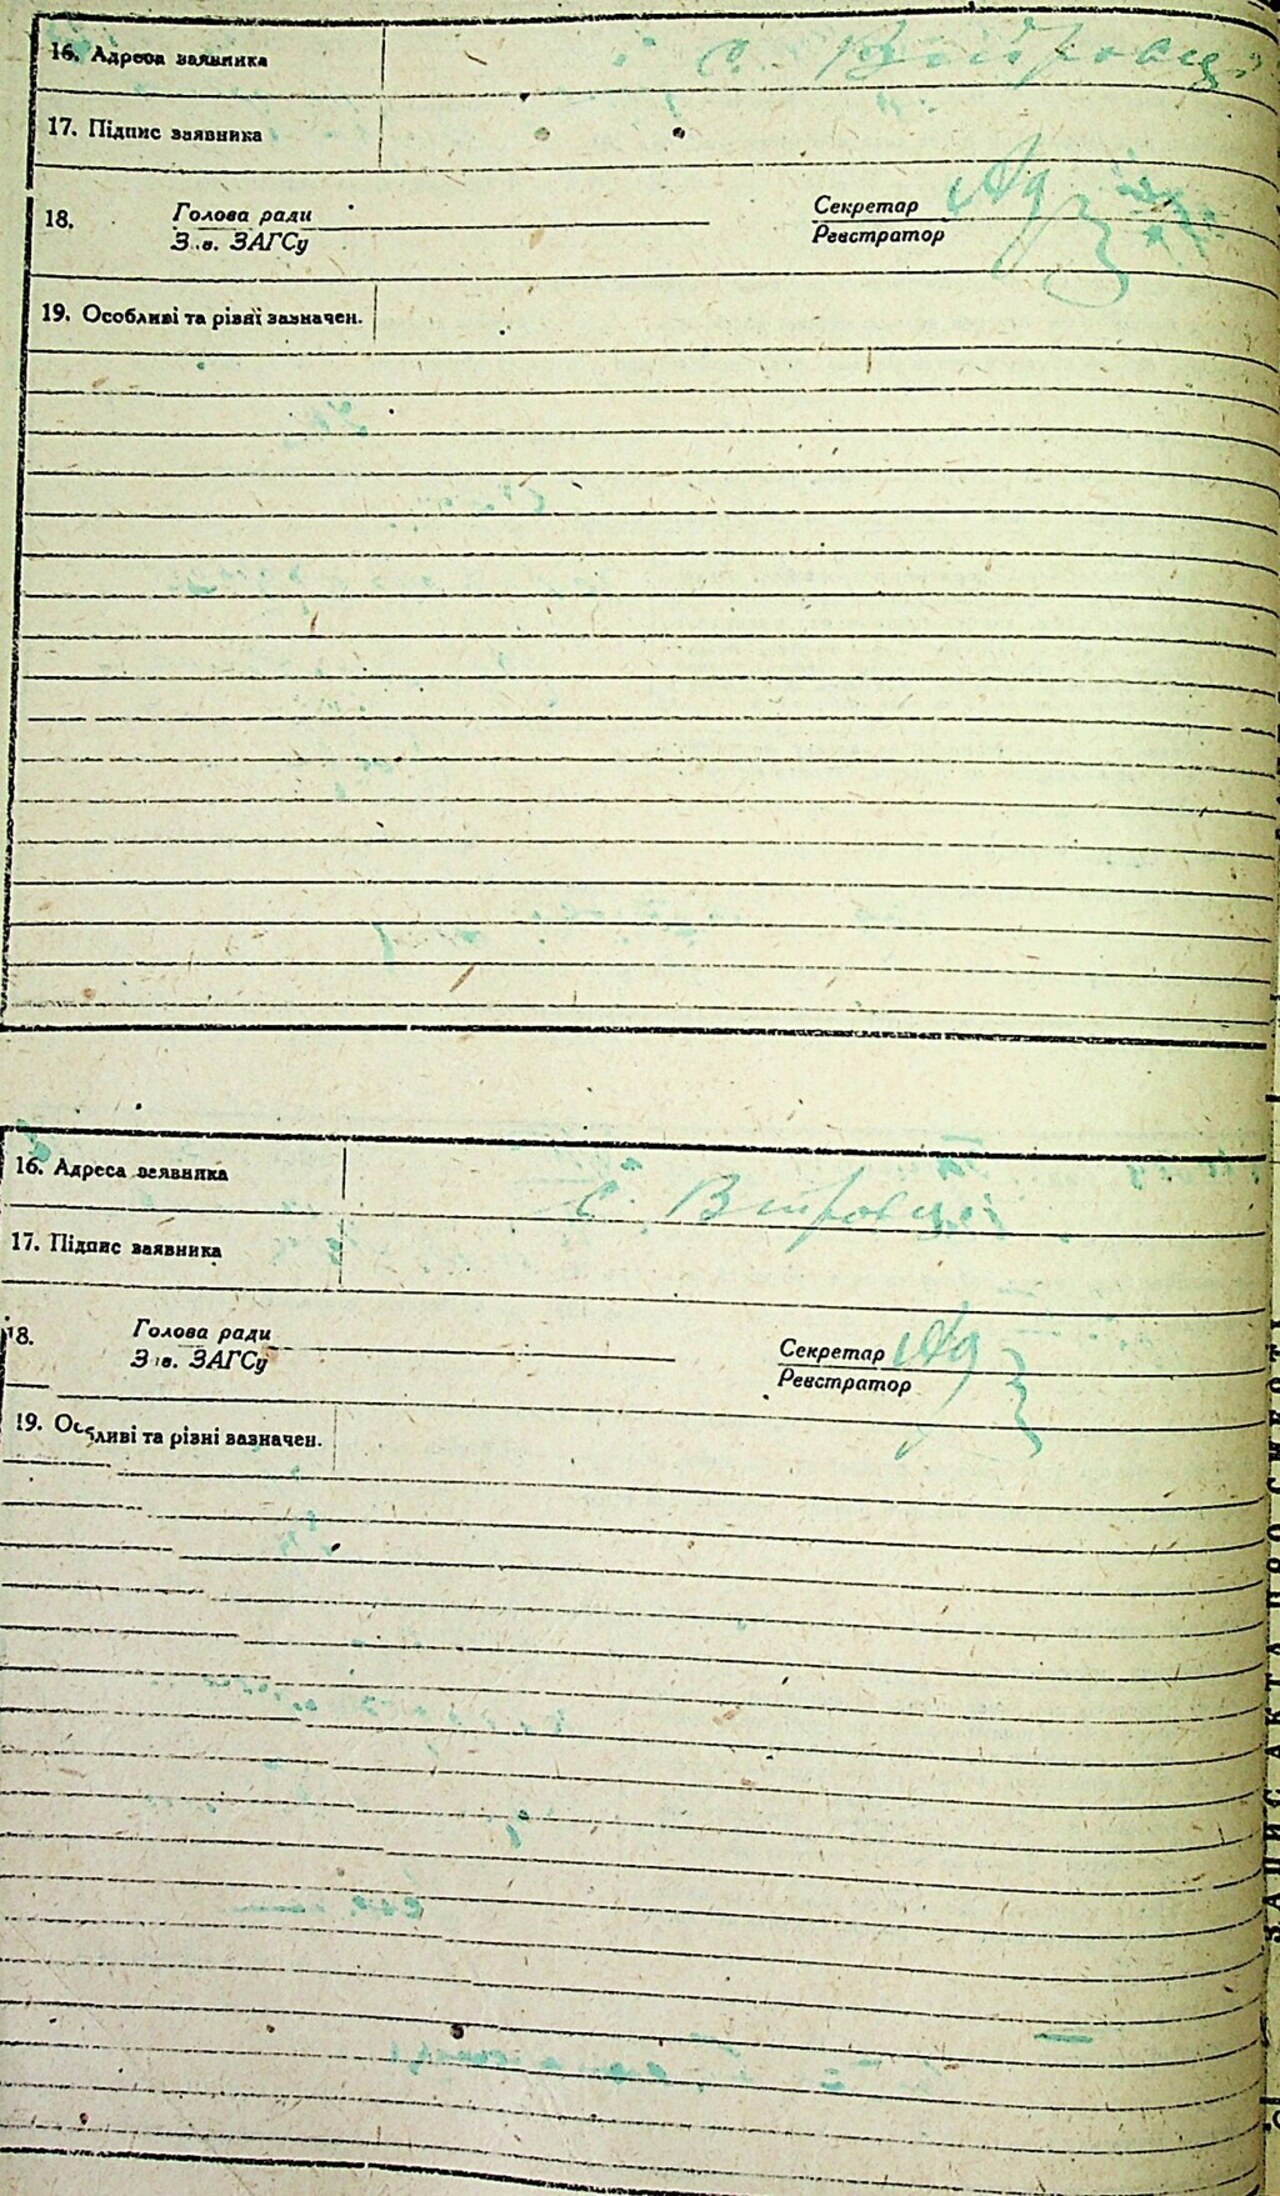 16. Адреса заявника с. Вітровці
17. Підпис заявника
18. Голова ради Секретар
Зав. ЗАГСу Реєстратор
19. Особливі та рівні зазначен.
16. Адреса заявника с. Вітровці
17. Підпис заявника
18. Голова ради Секретар
Зав. ЗАГСу Реєстратор
19. Особливі та рівні зазначен.